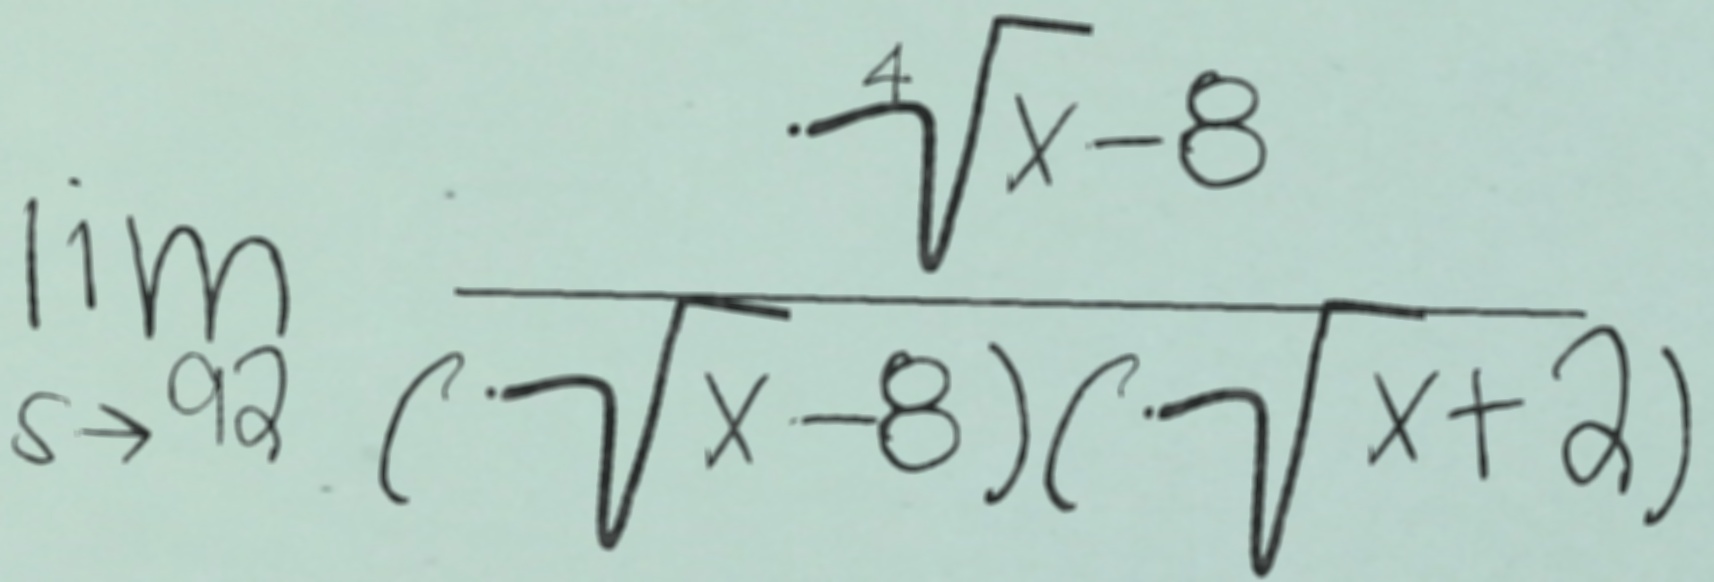 \lim_{s \to 92} \frac{\sqrt[4]{x}-8}{(\sqrt{x}-8)(\sqrt{x}+2)}